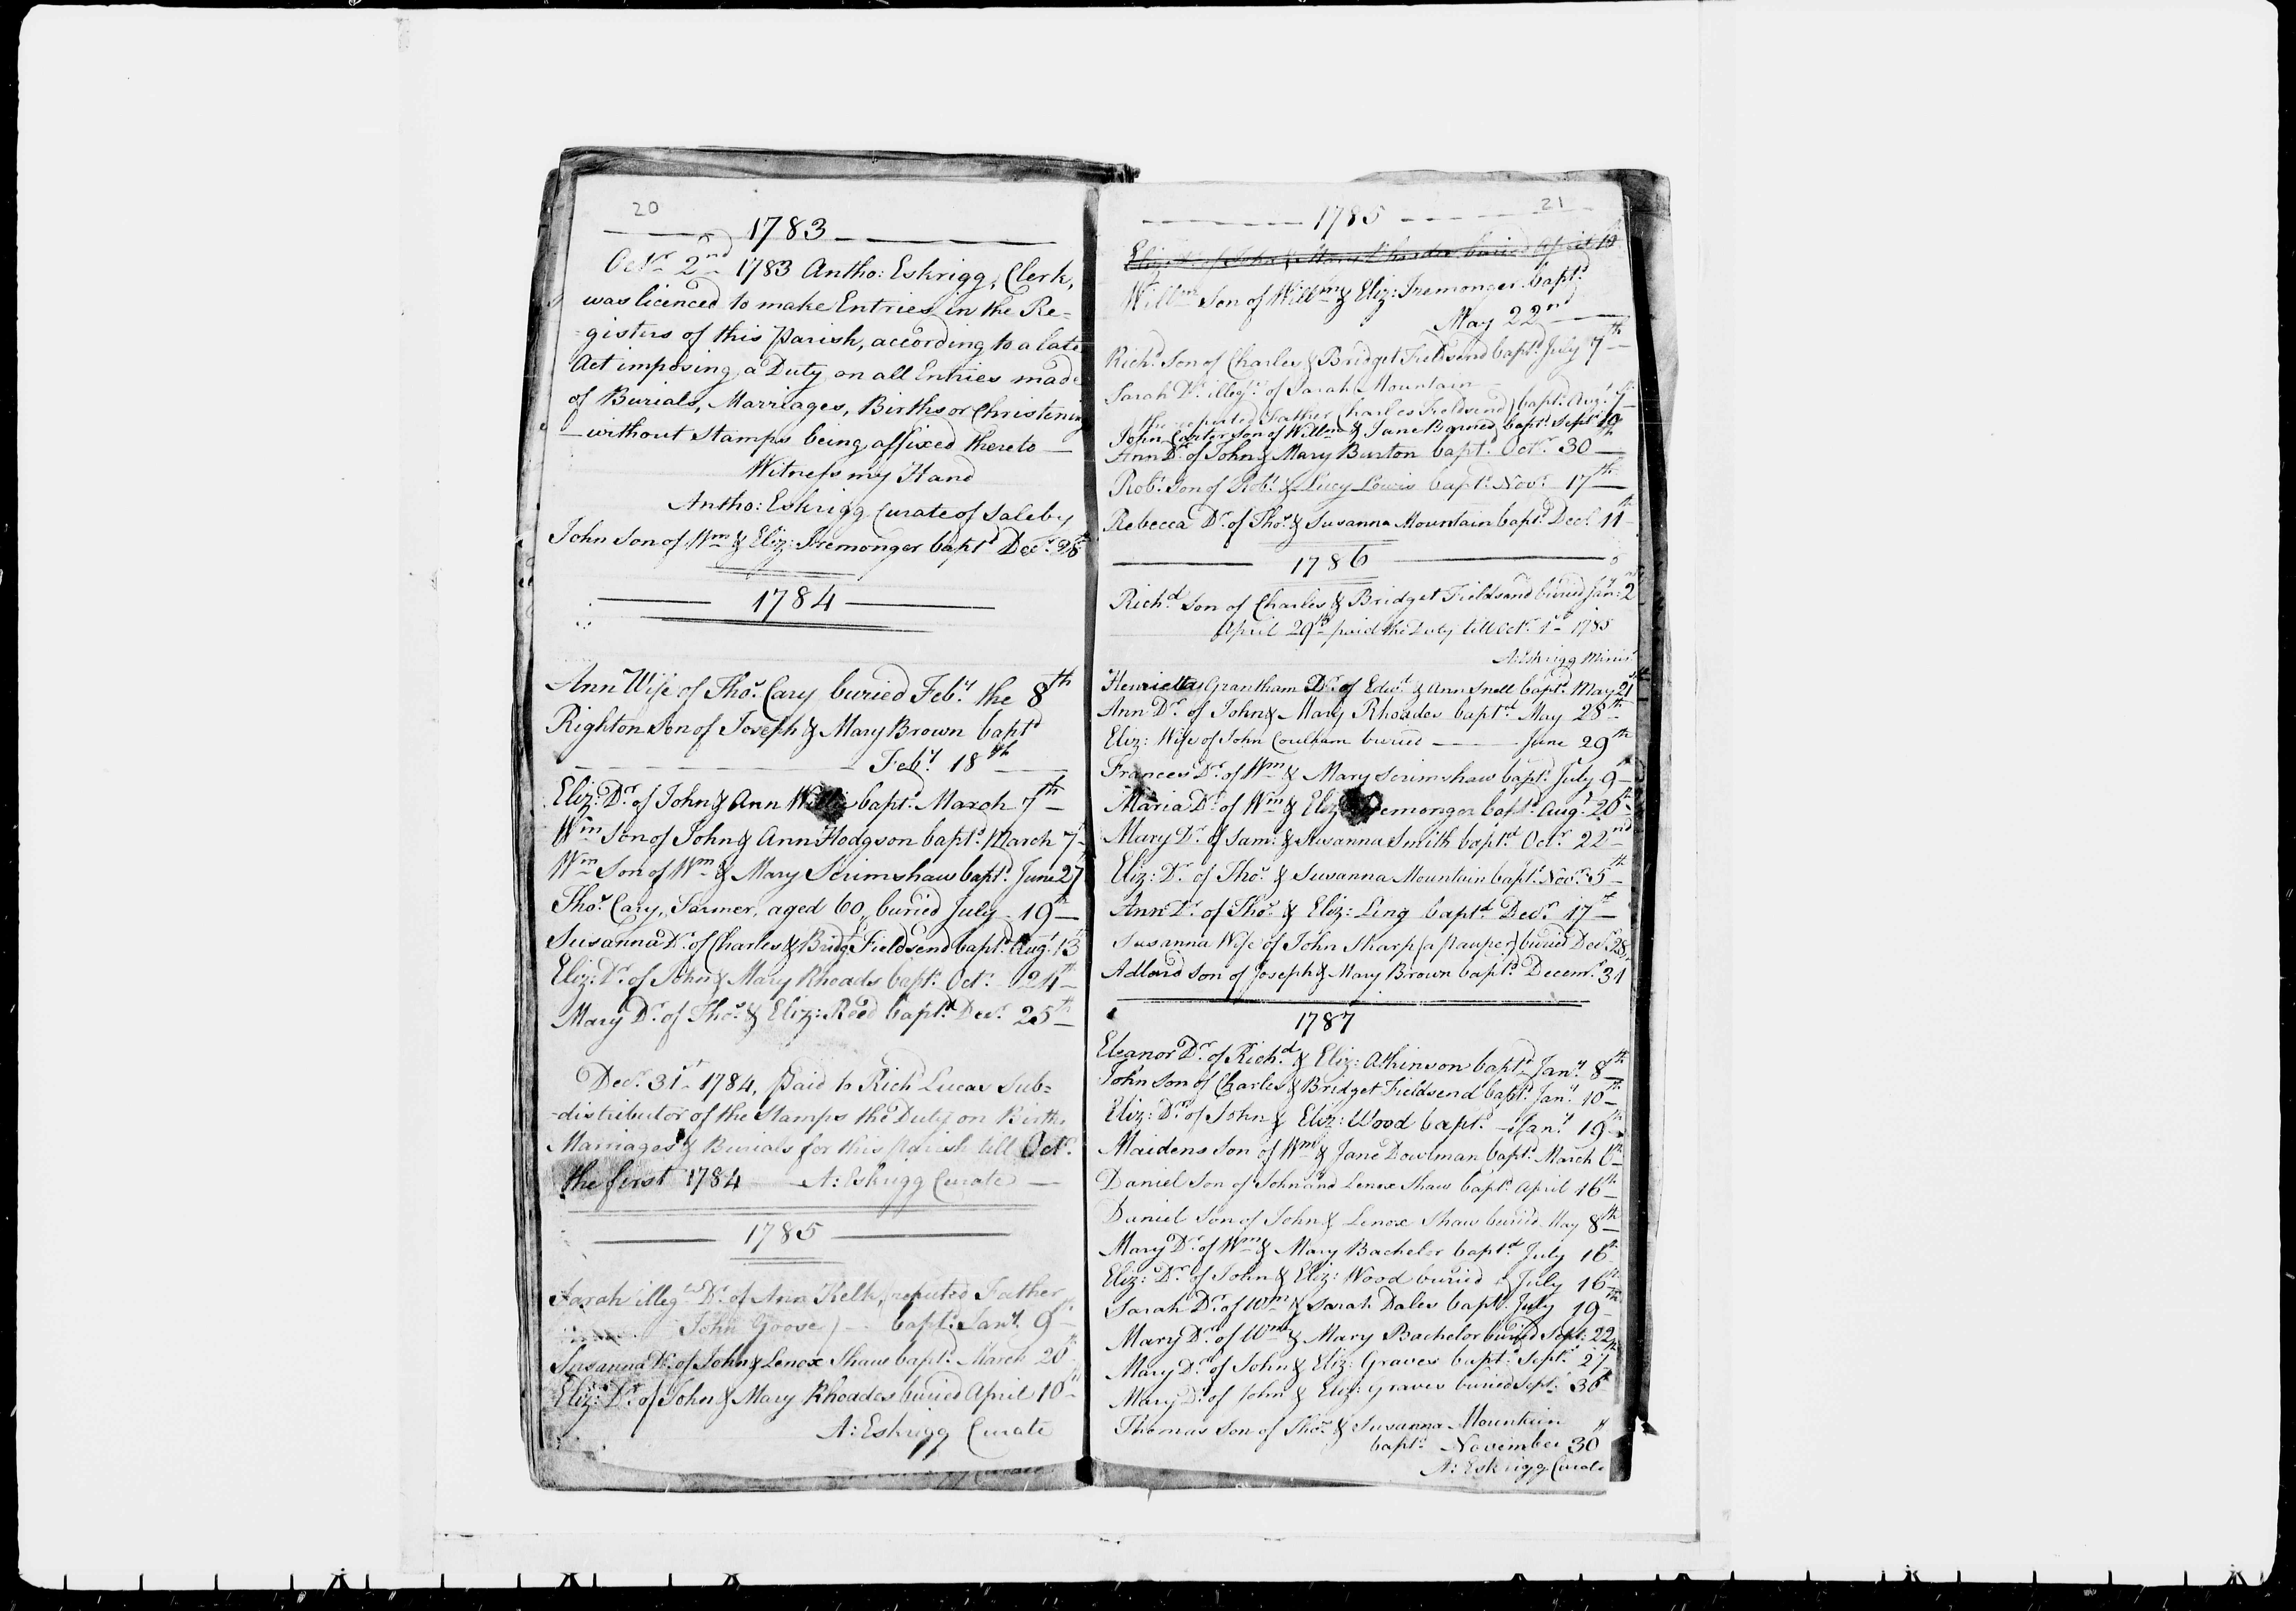 20
1783
Octr. 2nd 1783 Antho: Eskrigg, Clerk,
was licenced to make Entries in the Re=
=gisters of this Parish, according to a late
Act imposing a Duty on all Entries made
of Burials, Marriages, Births or Christening
— without Stamps being affixed thereto —
Witness my Hand
Antho: Eskrigg Curate of Saleby
John Son of Wm & Eliz: Iremonger baptd Decr. 28
1784
Ann Wife of Thos. Cary buried Feby. the 8th
Righton Son of Joseph & Mary Brown baptd
Feby. 18th
Eliz: Dr. of John & Ann baptd. March 7th
Wm Son of John & Ann Hodgson baptd. March 7
Wm Son of Wm & Mary Scrimshaw baptd. June 27
Thos. Cary, Farmer, aged 60, buried July 19th
Susanna Dr. of Charles & Bridgt Fieldsend baptd. Augt. 13
Eliz: Dr. of John & Mary Rhoades baptd. Octr. 24th
Mary Dr. of Thos. & Eliz: Reed baptd. Decr. 25th
Decr. 31st 1784, Paid to Richd Lucas Sub=
-distributor of the Stamps the Duty on Births
Marriages & Burials for this Parish till Octr.
the first 1784 — A: Eskrigg Curate —
1785
Sarah illegte. Dr. of Ann Kelk, (reputed Father
John Goose) — baptd. Jany. 9th
Susanna Dr. of John & Lenox Shaw baptd. March 20th
Eliz: Dr. of John & Mary Rhoades buried April 10th
A: Eskrigg Curate
21
1785
Eliz: Dr. of John & Mary Rhoades buried April 10
Willm Son of Willm & Eliz: Iremonger baptd.
May 22nd
Richd. Son of Charles & Bridget Fieldsend baptd. July 7th
Sarah Dr. illegte. of Sarah Mountain
the reputed Father Charles Fieldsend) baptd. Augt. 7
John Carter Son of Willm & Jane baptd. Sept 19
Ann Dr. of John & Mary Burton baptd. Octr. 30
Robt. Son of Robt. & Lucy Lowis baptd. Novr. 17th
Rebecca Dr. of Thos. & Susanna Mountain baptd. Decr. 11th
1786
Richd. Son of Charles & Bridget Fieldsend buried Jany. 2
April 29th paid the Duty till Octr. 1st 1785
A: Eskrigg Minisr.
Henrietta Grantham Dr. of Edwd. & Ann Snell baptd. May 21st
Ann Dr. of John & Mary Rhoades baptd. May 28th
Eliz: Wife of John Coulham buried — June 29th
Frances Dr. of Wm & Mary Scrimshaw baptd. July 9th
Maria Dr. of Wm & Eliz emonger baptd. Augt. 20th
Mary Dr. of Saml. & Susanna Smith baptd. Octr. 22nd
Eliz: Dr. of Thos. & Susanna Mountain baptd. Novr. 5th
Ann Dr. of Thos. & Eliz: Ling baptd. Decr. 17th
Susanna Wife of John Sharp (a pauper) buried Decr. 28
Adlard Son of Joseph & Mary Brown baptd. Decemr. 31
1787
Eleanor Dr. of Richd. & Eliz: Atkinson baptd Jany. 8th
John Son of Charles & Bridget Fieldsend baptd. Jany. 10th
Eliz: Dr. of John & Eliz: Wood baptd. — Jany. 19th
Maidens Son of Wm & Jane Dowlman baptd. March 6th
Daniel Son of John and Lenox Shaw baptd. April 16th
Daniel Son of John & Lenox Shaw buried May 8th
Mary Dr. of Wm & Mary Bachelor baptd. July 16th
Eliz: Dr. of John & Eliz: Wood buried July 16th
Sarah Dr. of Wm & Sarah Dales baptd. July 19th
Mary Dr. of Wm & Mary Bachelor buried Sept. 22
Mary Dr. of John & Eliz: Graves baptd. Septr. 27
Mary Dr. of John & Eliz: Graves buried Septr. 30th
Thomas Son of Thos. & Susanna Mountain
baptd. November 30th
A: Eskrigg Curate